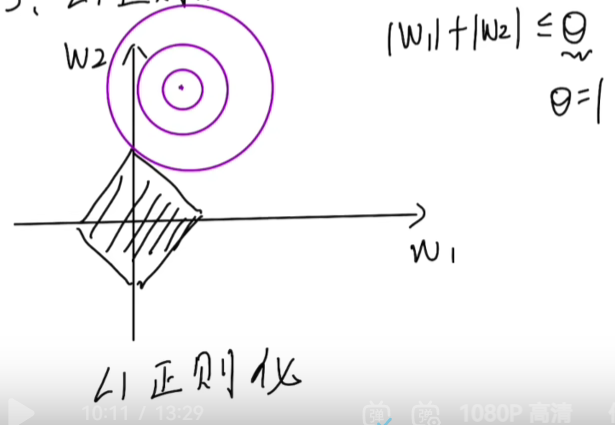 W2
|W1|+|W2| ≤ θ
θ=1
W1
L1 正则化
10:11 / 13:29
1080P 高清